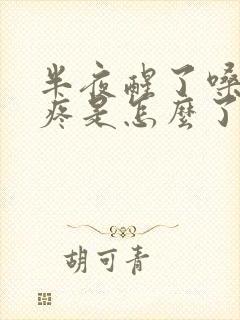 半夜醒了嗓
疼是怎麼了
胡可青